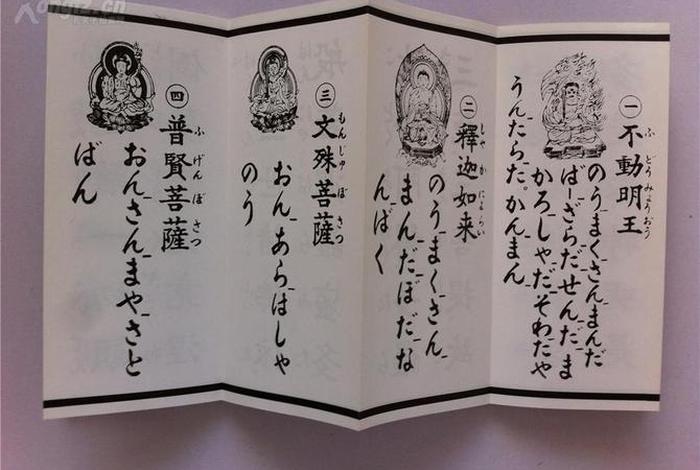 ㊀ 不動明王
ふどうみょうおう
のうまくさんまんだ
ばーざらだせんだま
かろしゃだそわたや
うんたらた。かんまん
㊁ 釋迦如来
しゃかにょらい
のうまくさん
まんだぼだな
んばく
㊂ 文殊菩薩
もんじゅぼさつ
おんあらはしゃ
のう
㊃ 普賢菩薩
ふげんぼさつ
おんさんまやさと
ばん